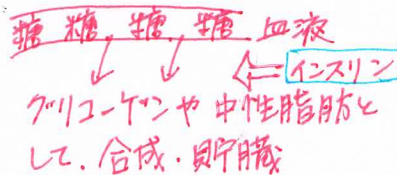 糖 糖 糖 糖 血液
インスリン
グリコーゲンや中性脂肪と
して、合成・貯蔵